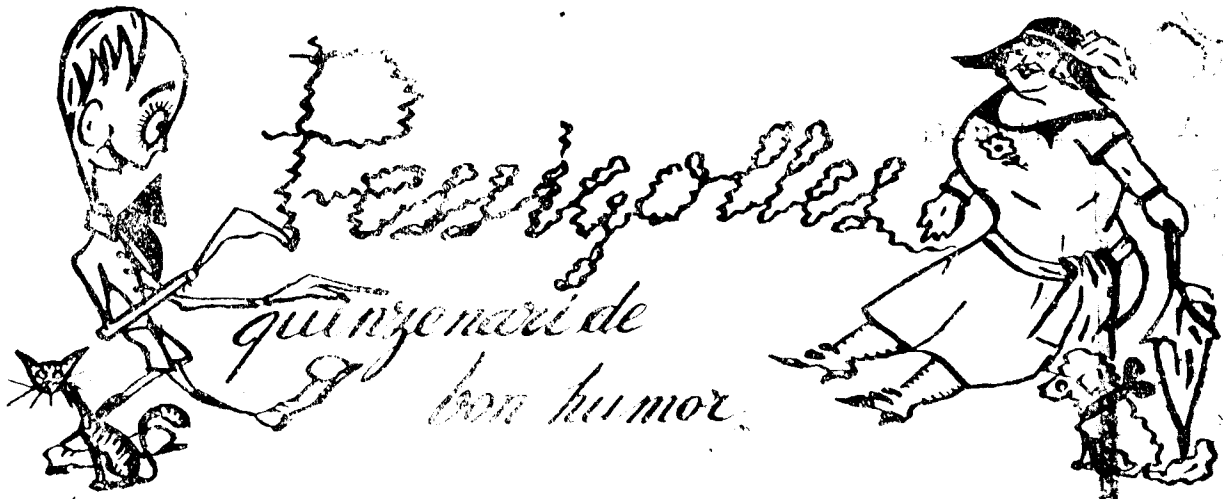 Pessigolles
quinzenari de
bon humor.